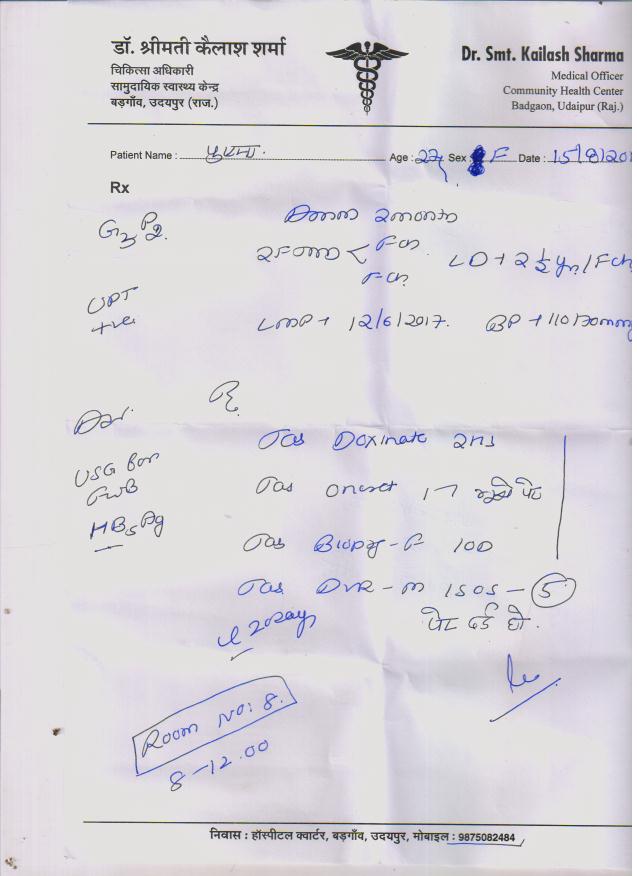 डॉ. श्रीमती कैलाश शर्मा
चिकित्सा अधिकारी
सामुदायिक स्वास्थ्य केन्द्र
बड़गाँव, उदयपुर (राज.)
Dr. Smt. Kailash Sharma
Medical Officer
Community Health Center
Badgaon, Udaipur (Raj.)
Patient Name : Age : Sex : F Date : 15/8/201
Rx
G3P2. 2 month
LD + 2 1/2 yr / Fch
UPT
+ve
LMP + 12/6/2017. BP + 110/70mm
USG for
FWB
HBsAg
Tab Doxinate 2HS
Tab भूखे पेट
Tab 1OD
Tab - 1SOS - 5
पेट दर्द हो.
20 day
ROOM NO: 8.
8 - 12.00
निवास : हॉस्पीटल क्वार्टर, बड़गाँव, उदयपुर, मोबाइल : 9875082484